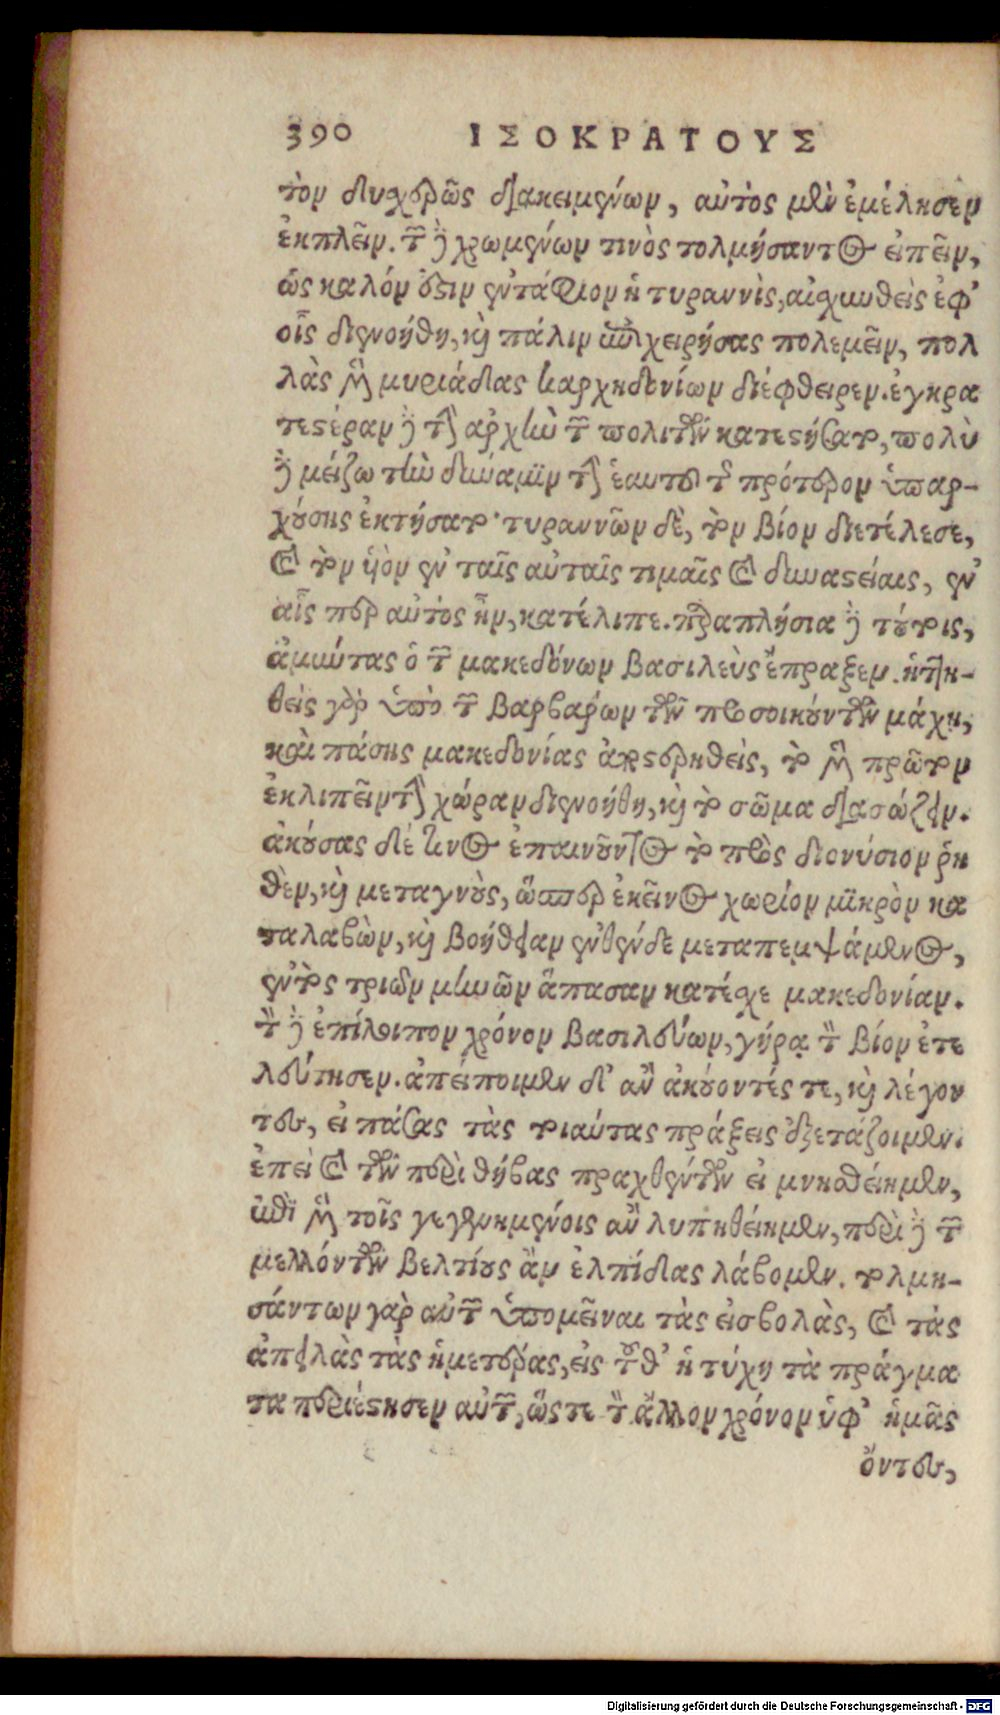 390 ΙΣΟΚΡΑΤΟΥΣ
τὸν δυχερῶς διακειμένων, αὐτὸς μὲν ἐμέλησεν
ἐκπλεῖν. τῶν δὲ χρωμένων τινὸς τολμήσαντος εἰπεῖν,
ὡς καλόν ἐστιν ἐντάφιον ἡ τυραννὶς, αἰσχυνθεὶς ἐφ'
οἷς διενοήθη, καὶ πάλιν ἐπιχειρήσας πολεμεῖν, πολ
λὰς μὲν μυριάδας Καρχηδονίων διέφθειρεν. ἐγκρα
τεστέραν δὲ τὴν ἀρχὴν τῶν πολιτῶν κατεστήσατο, πολὺ
δὲ μείζω τὴν δύναμιν τὴν ἑαυτοῦ τῆς πρότερον ὑπαρ-
χούσης ἐκτήσατο· τυραννῶν δὲ, τὸν βίον διετέλεσε,
καὶ τὸν ὑὸν ἐν ταῖς αὐταῖς τιμαῖς καὶ δυναστείαις, ἐν
αἷς περ αὐτὸς ἦν, κατέλιπε. παραπλήσια δὲ τούτοις,
ἀμύντας ὁ τῶν μακεδόνων βασιλεὺς ἔπραξεν. ἡττη-
θεὶς γὰρ ὑπὸ τῶν βαρβάρων τῶν προσοικούντων μάχῃ,
καὶ πάσης μακεδονίας ἀποστερηθεὶς, τὸ μὲν πρῶτον
ἐκλιπεῖν τὴν χώραν διενοήθη, καὶ τὸ σῶμα διασώζειν.
ἀκούσας δέ τινος ἐπαινοῦντος τὸ πρὸς διονύσιον ῥη
θὲν, καὶ μεταγνοὺς, ὥσπερ ἐκεῖνος χωρίον μικρὸν κα
ταλαβὼν, καὶ βοήθειαν ἐνθένδε μεταπεμψάμενος,
ἐντὸς τριῶν μηνῶν ἅπασαν κατέσχε μακεδονίαν.
τὸν δὲ ἐπίλοιπον χρόνον βασιλεύων, γήρᾳ τὸν βίον ἐτε
λεύτησεν. ἀπείποιμεν δ' ἂν ἀκούοντές τε, καὶ λέγον
τες, εἰ πάσας τὰς τοιαύτας πράξεις ἐξετάζοιμεν.
ἐπεὶ καὶ τῶν περὶ θήβας πραχθέντων εἰ μνησθείημεν,
ἐπὶ μὲν τοῖς γεγενημένοις ἂν λυπηθείημεν, περὶ δὲ τῶν
μελλόντων βελτίους ἂν ἐλπίδας λάβομεν. τολμη-
σάντων γὰρ αὐτῶν ὑπομεῖναι τὰς εἰσβολὰς, καὶ τὰς
ἀπειλὰς τὰς ἡμετέρας, εἰς τοῦθ' ἡ τύχη τὰ πράγμα
τα περιέστησεν αὐτῶν, ὥστε τὸν ἄλλον χρόνον ὑφ' ἡμᾶς
ὄντες,
Digitalisierung gefördert durch die Deutsche Forschungsgemeinschaft - DFG